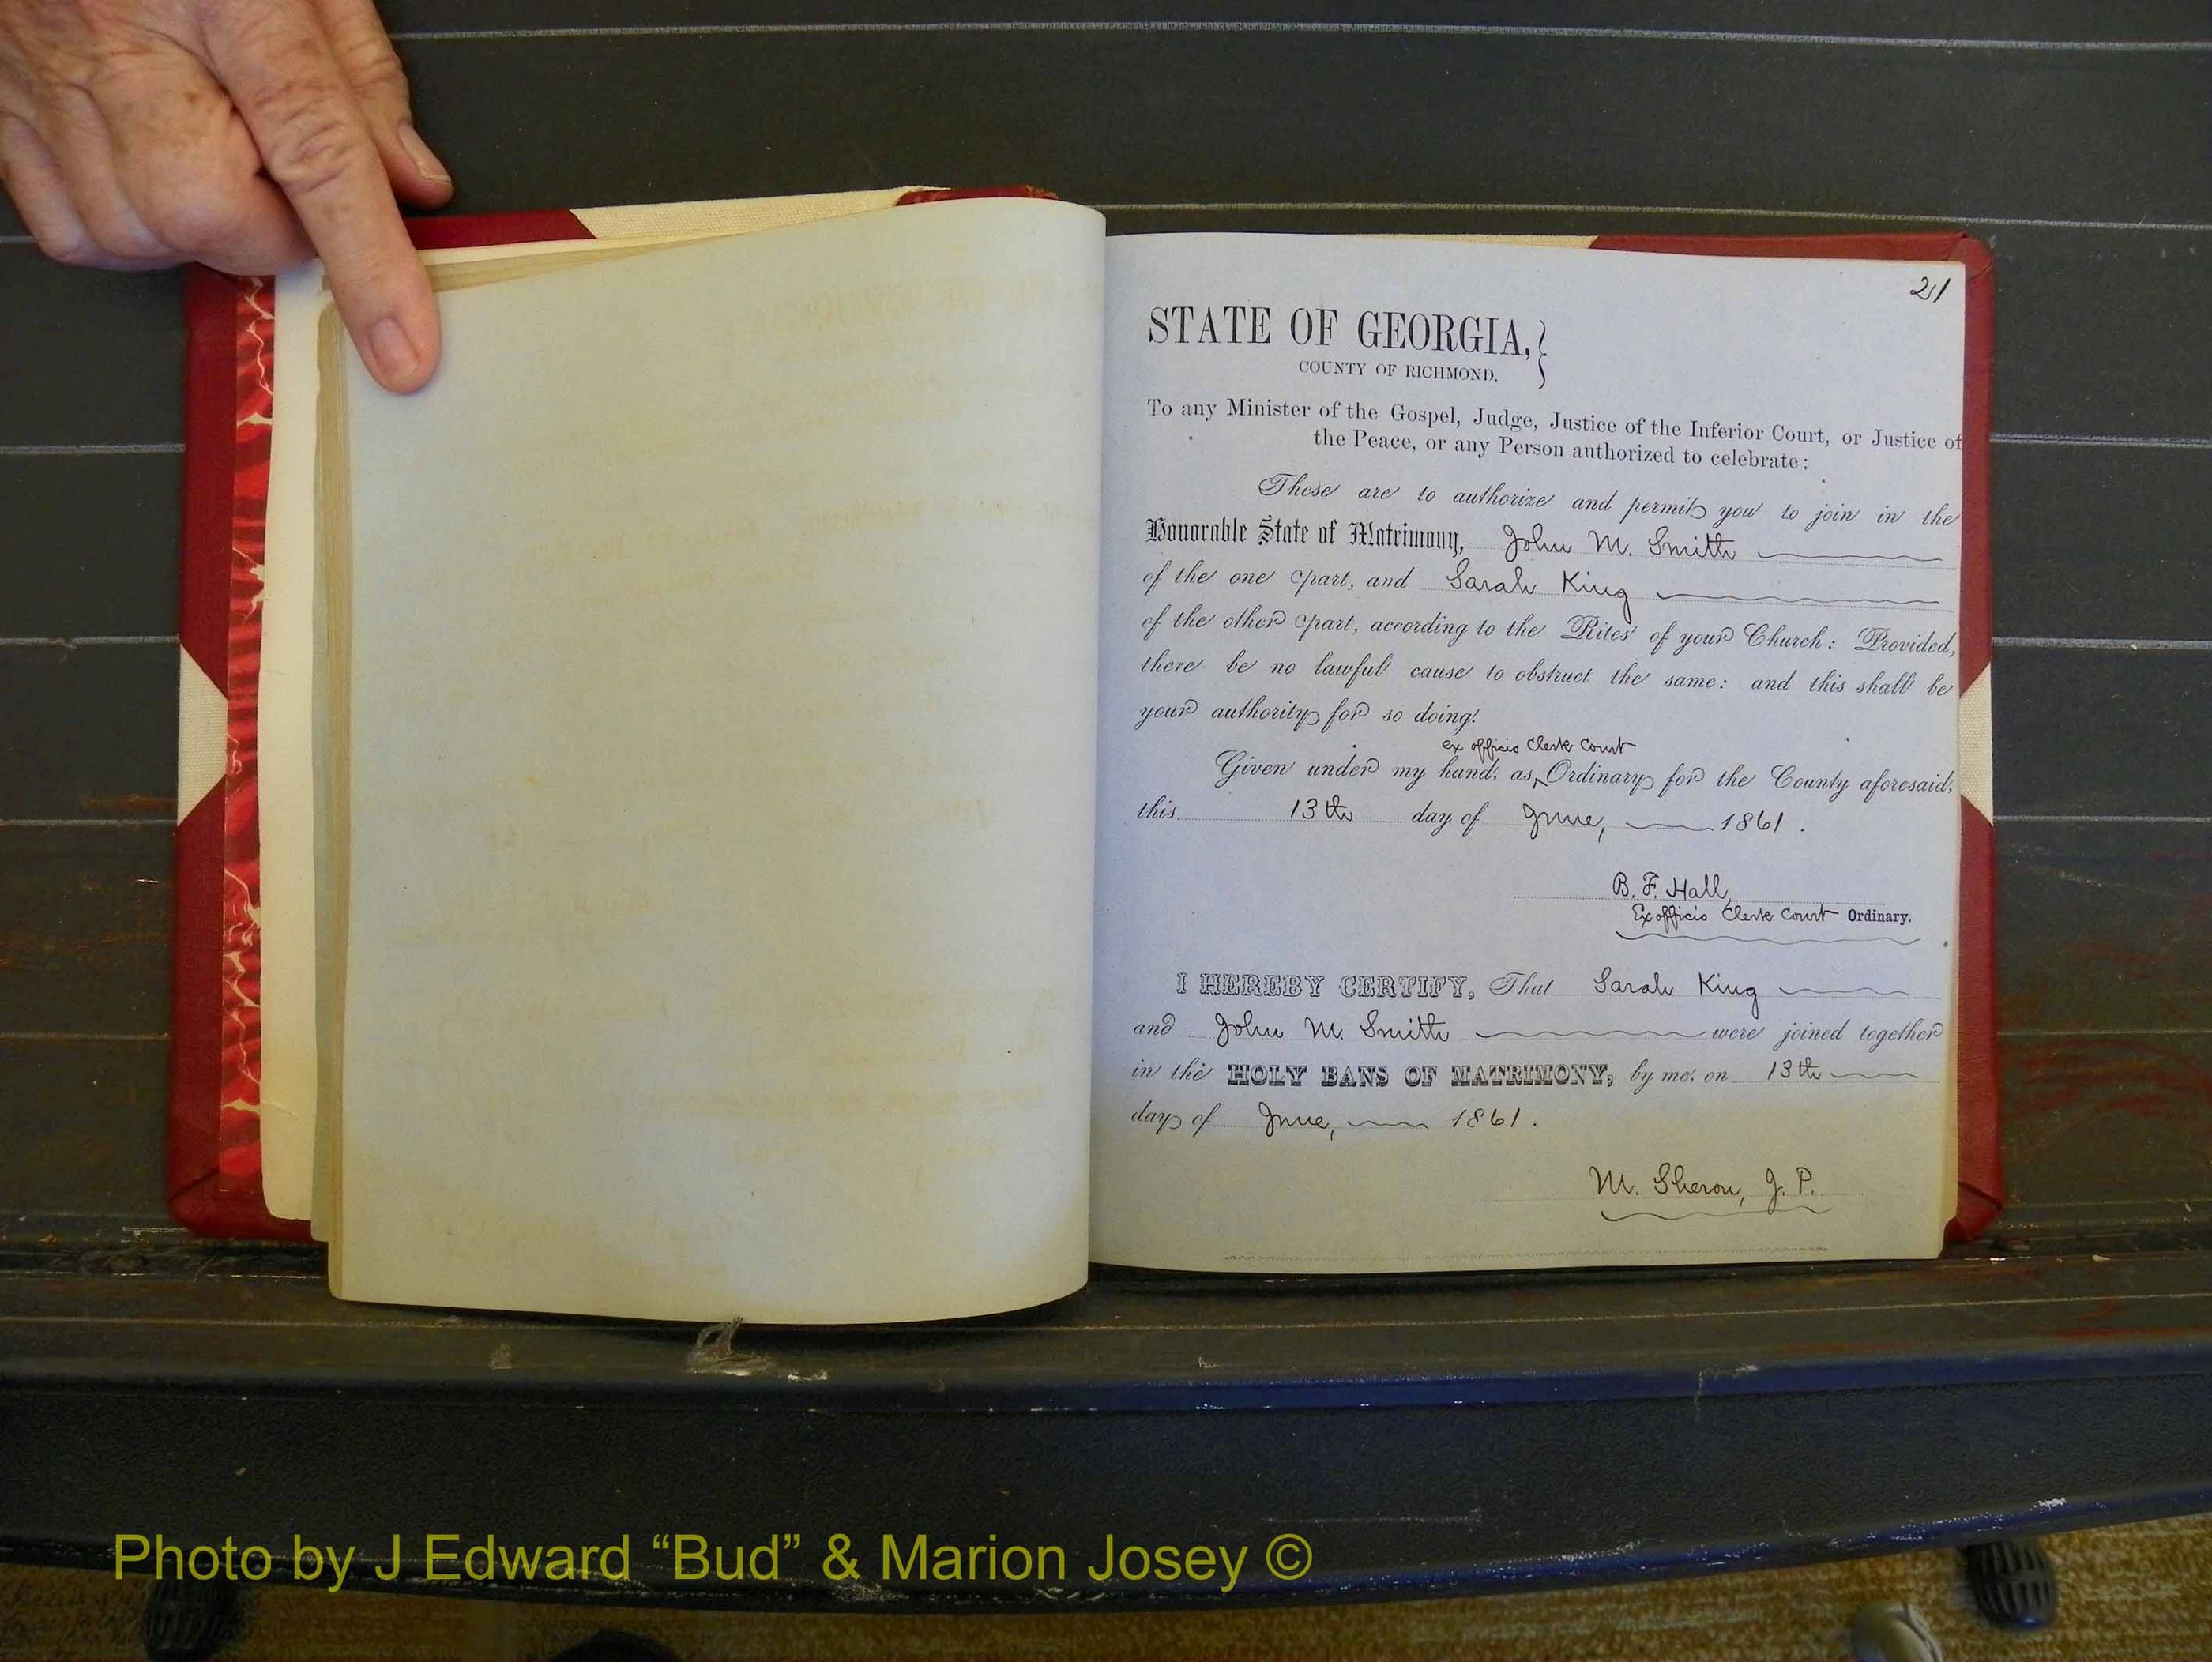 21
STATE OF GEORGIA,
COUNTY OF RICHMOND.
To any Minister of the Gospel, Judge, Justice of the Inferior Court, or Justice of
the Peace, or any Person authorized to celebrate:
These are to authorize and permit you to join in the
Honorable State of Matrimony, John M. Smith
of the one part, and Sarah King
of the other part, according to the Rites of your Church: Provided,
there be no lawful cause to obstruct the same: and this shall be
your authority for so doing.
ex officio Clerk Court
Given under my hand, as Ordinary for the County aforesaid,
this 13th day of June, 1861.
B. F. Hall,
Ex officio Clerk Court Ordinary.
I HEREBY CERTIFY, That Sarah King
and John M. Smith were joined together
in the HOLY BANS OF MATRIMONY, by me, on 13th
day of June, 1861.
M. Sheron, J. P.
Photo by J Edward “Bud” & Marion Josey ©